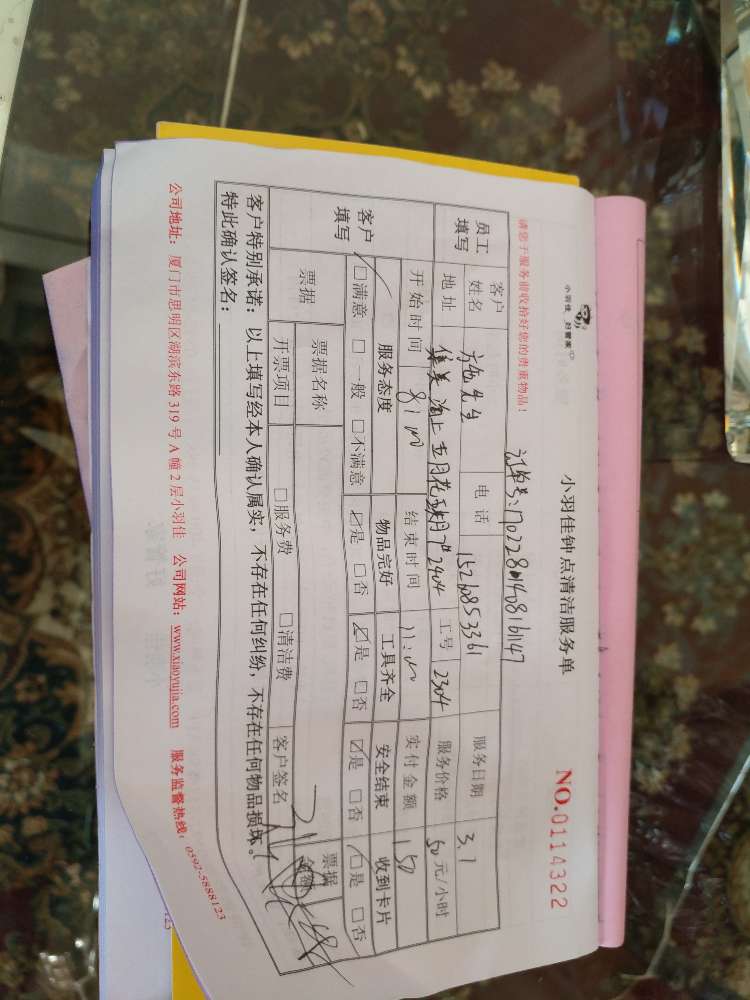 小羽佳 好管家
小羽佳钟点清洁服务单
NO.0114322
请您于服务前收拾好您的贵重物品!
员工填写
客户姓名
先生
电话
15260853361
服务日期
3.1
地址
2404
工号
2304
服务价格
50 元/小时
开始时间
8:00
结束时间
11:00
实付金额
150
客户填写
服务态度
物品完好
工具齐全
安全结束
收到卡片
☐满意 ☐一般 ☐不满意
☑是 ☐否
☑是 ☐否
☑是 ☐否
☑是 ☐否
票据
票据名称
票据金额
开票项目
☐服务费 ☐清洁费
客户签名
客户特别承诺:以上填写经本人确认属实,不存在任何纠纷,不存在任何物品损坏。
特此确认签名:
公司地址:厦门市思明区湖滨东路 319 号 A 幢 2 层小羽佳 公司网站:www.xiaoyujia.com 服务监督热线:0592-5888123